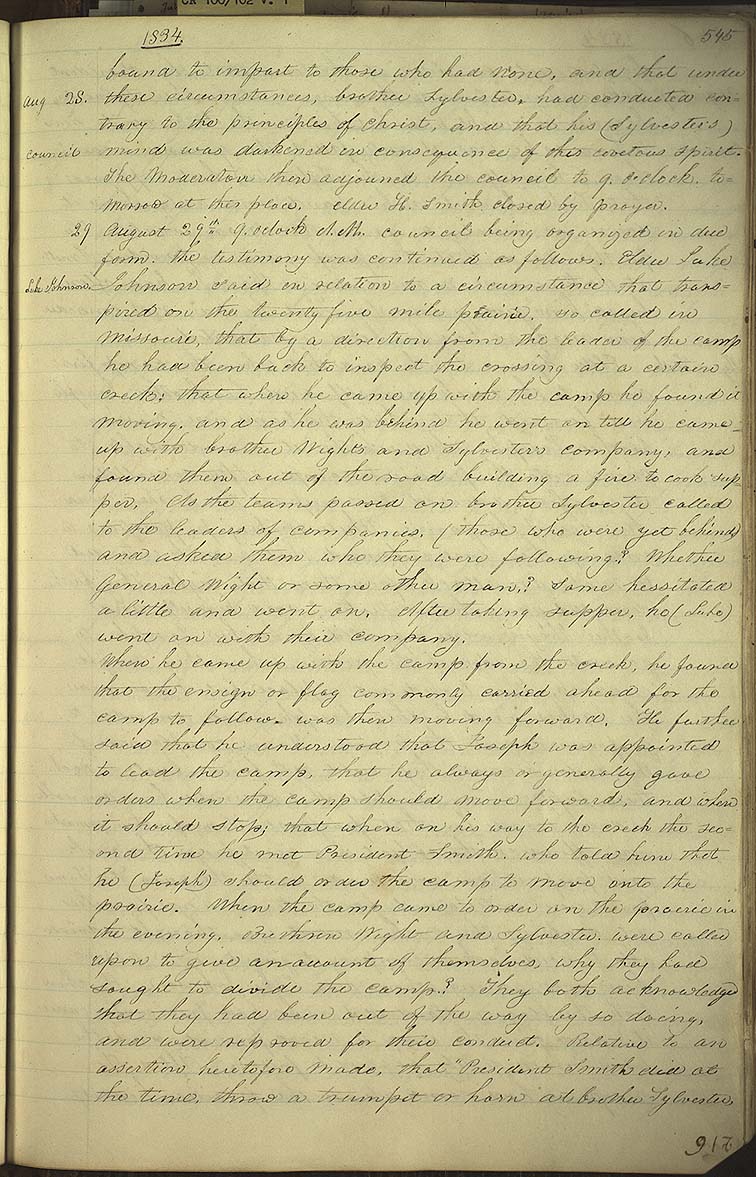 CR 100/102 V. 1
1834.
545
bound to impart to those who had none, and that under
Aug 28. these circumstances, brother Sylvester, had conducted con=
trary to the principles of Christ, and that his (Sylvester's)
Council mind was darkened in consequence of this covetous spirit.
The Moderator then adjourned the council to 9. o'clock. to=
morrow at this place. Elder H. Smith closed by prayer.
29 August 29th 9. oclock A.M. council being organized in due
form. the testimony was continued as follows. Elder Luke
Luke Johnson. Johnson said in relation to a circumstance that trans=
pired on the twenty five mile prairie. so called in
Missouri, that by a direction from the leader of the camp
he had been back to inspect the crossing at a certain
creek; that when he came up with the camp he found it
moving. and as he was behind he went on till he came
up with brother Wight's and Sylvester's company, and
found them out of the road building a fire to cook sup
per. As the teams passed on brother Sylvester called
to the leaders of companies. (those who were yet behind)
and asked them who they were following? Whether
General Wight or some other man,? Some hessitated
a little and went on. After taking supper, he (Luke)
went on with their company.
When he came up with the camp from the creek, he found
that the ensign or flag commonly carried ahead for the
camp to follow. was then moving forward. He further
said that he understood that Joseph was appointed
to lead the camp, that he always or generally gave
orders when the camp should move forward, and when
it should stop; that when on his way to the creek the sec=
ond time he met President Smith. who told him that
he (Joseph) should order the camp to move onto the
prairie. When the camp came to order on the prairie in
the evening. Brethren Wight and Sylvester. were called
upon to give an account of themselves, why they had
sought to divide the camp.? They both acknowledged
that they had been out of the way by so doing,
and were reproved for their conduct. Relative to an
assertion heretofore made, that "President Smith did at
the time, throw a trumpet or horn at brother Sylvester,
917